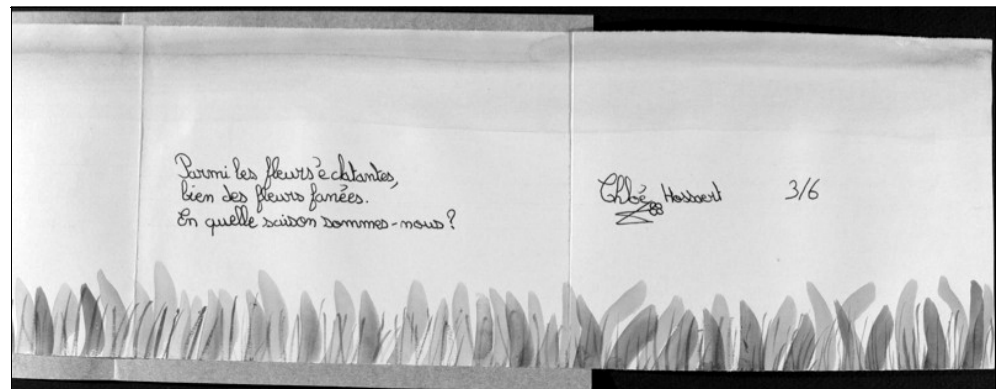 Parmi les fleurs éclatantes,
bien des fleurs fanées.
En quelle saison sommes-nous ?
Chloé Hossaert 3/6